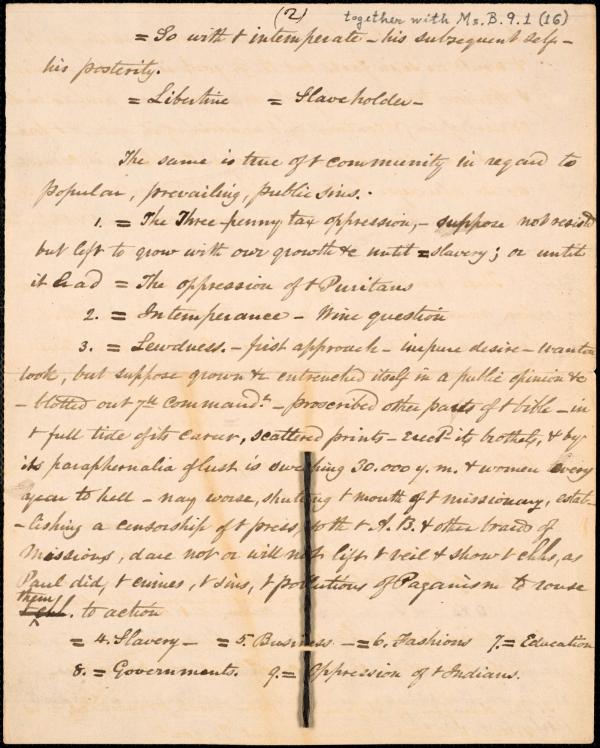 (2) together with Ms. B. 9. 1 (16)
= So with t intemperate - his subsequent self -
his posterity.
= Libertine = Slaveholder -
The same is true of t community in regard to
popular, prevailing, public sins. -
1. = The Three-penny tax oppression, - suppose not resisted
but left to grow with our growth &c until = slavery; or until
it had = The oppression of t Puritans
2. = Intemperance - Wine question
3. = Lewdness. - first approach - impure desire - wanton
look, but suppose grown & entrenched itself in a public opinion &c
- blotted out 7th Command.t - proscribed other parts of t bible - in
t full tide of its career, scattered prints - Erec.d its brothels, & by
its paraphernalia of lust is sweeping 30.000 y. m. & women every
year to hell - nay worse, shutting t mouth of t missionary, estab-
-lishing a censorship of t press, so th t A. B. & other boards of
Missions, dare not or will not lift t veil & show t chhs, as
Paul did, t crimes, t sins, t pollutions of Paganism to rouse
them
t chh. to action
= 4. Slavery - = 5. Business - = 6. Fashions 7. = Education
8. = Governments. 9. = Oppression of t Indians.